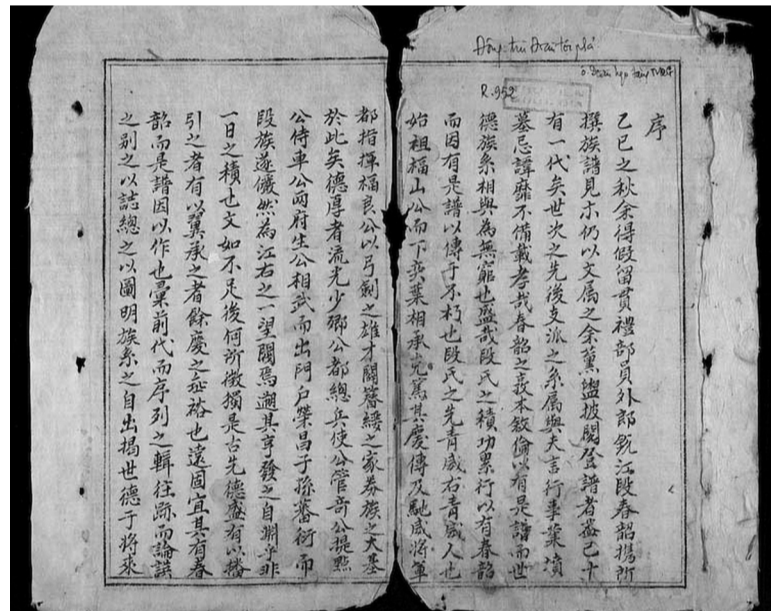 Đông-trù Đoàn tộc phả
R.952
序
乙巳之秋余得假留貫禮部員外郎銳江段春韶携所
撰族譜見示仍以文属之余薰盥披閱登譜者蓋已十
有一代矣世次之先後支派之系属與夫言行事業墳
墓忌諱靡不備載孝哉春韶之我本敘倫以有是譜而世
德族系相與為無窮也盛哉段氏之積功累行以有春韶
而因有是譜以傳于不朽也段氏之先青威右青威人也
始祖福山公而下奕葉相承克篤其慶傳及馳威將軍
都指揮福良公以弓劍之雄才闢簪纓之家券族之大基
於此矣德厚者流光少卿公都總兵使公管奇公提點
公侍車公兩府生公相武而出門户榮昌子孫蕃衍而
段族遂儼然為江右之一望閥焉遡其亨發之自淵乎非
一日之積也文如不足後何所徵獨是古先德盛有以播
引之者有以翼承之者餘慶之垂裕也遠固宜其有春
韶而是譜因以作也彙前代而序列之輯往跡而論譔
之别之以誌總之以圖明族系之自出揭世德于將來